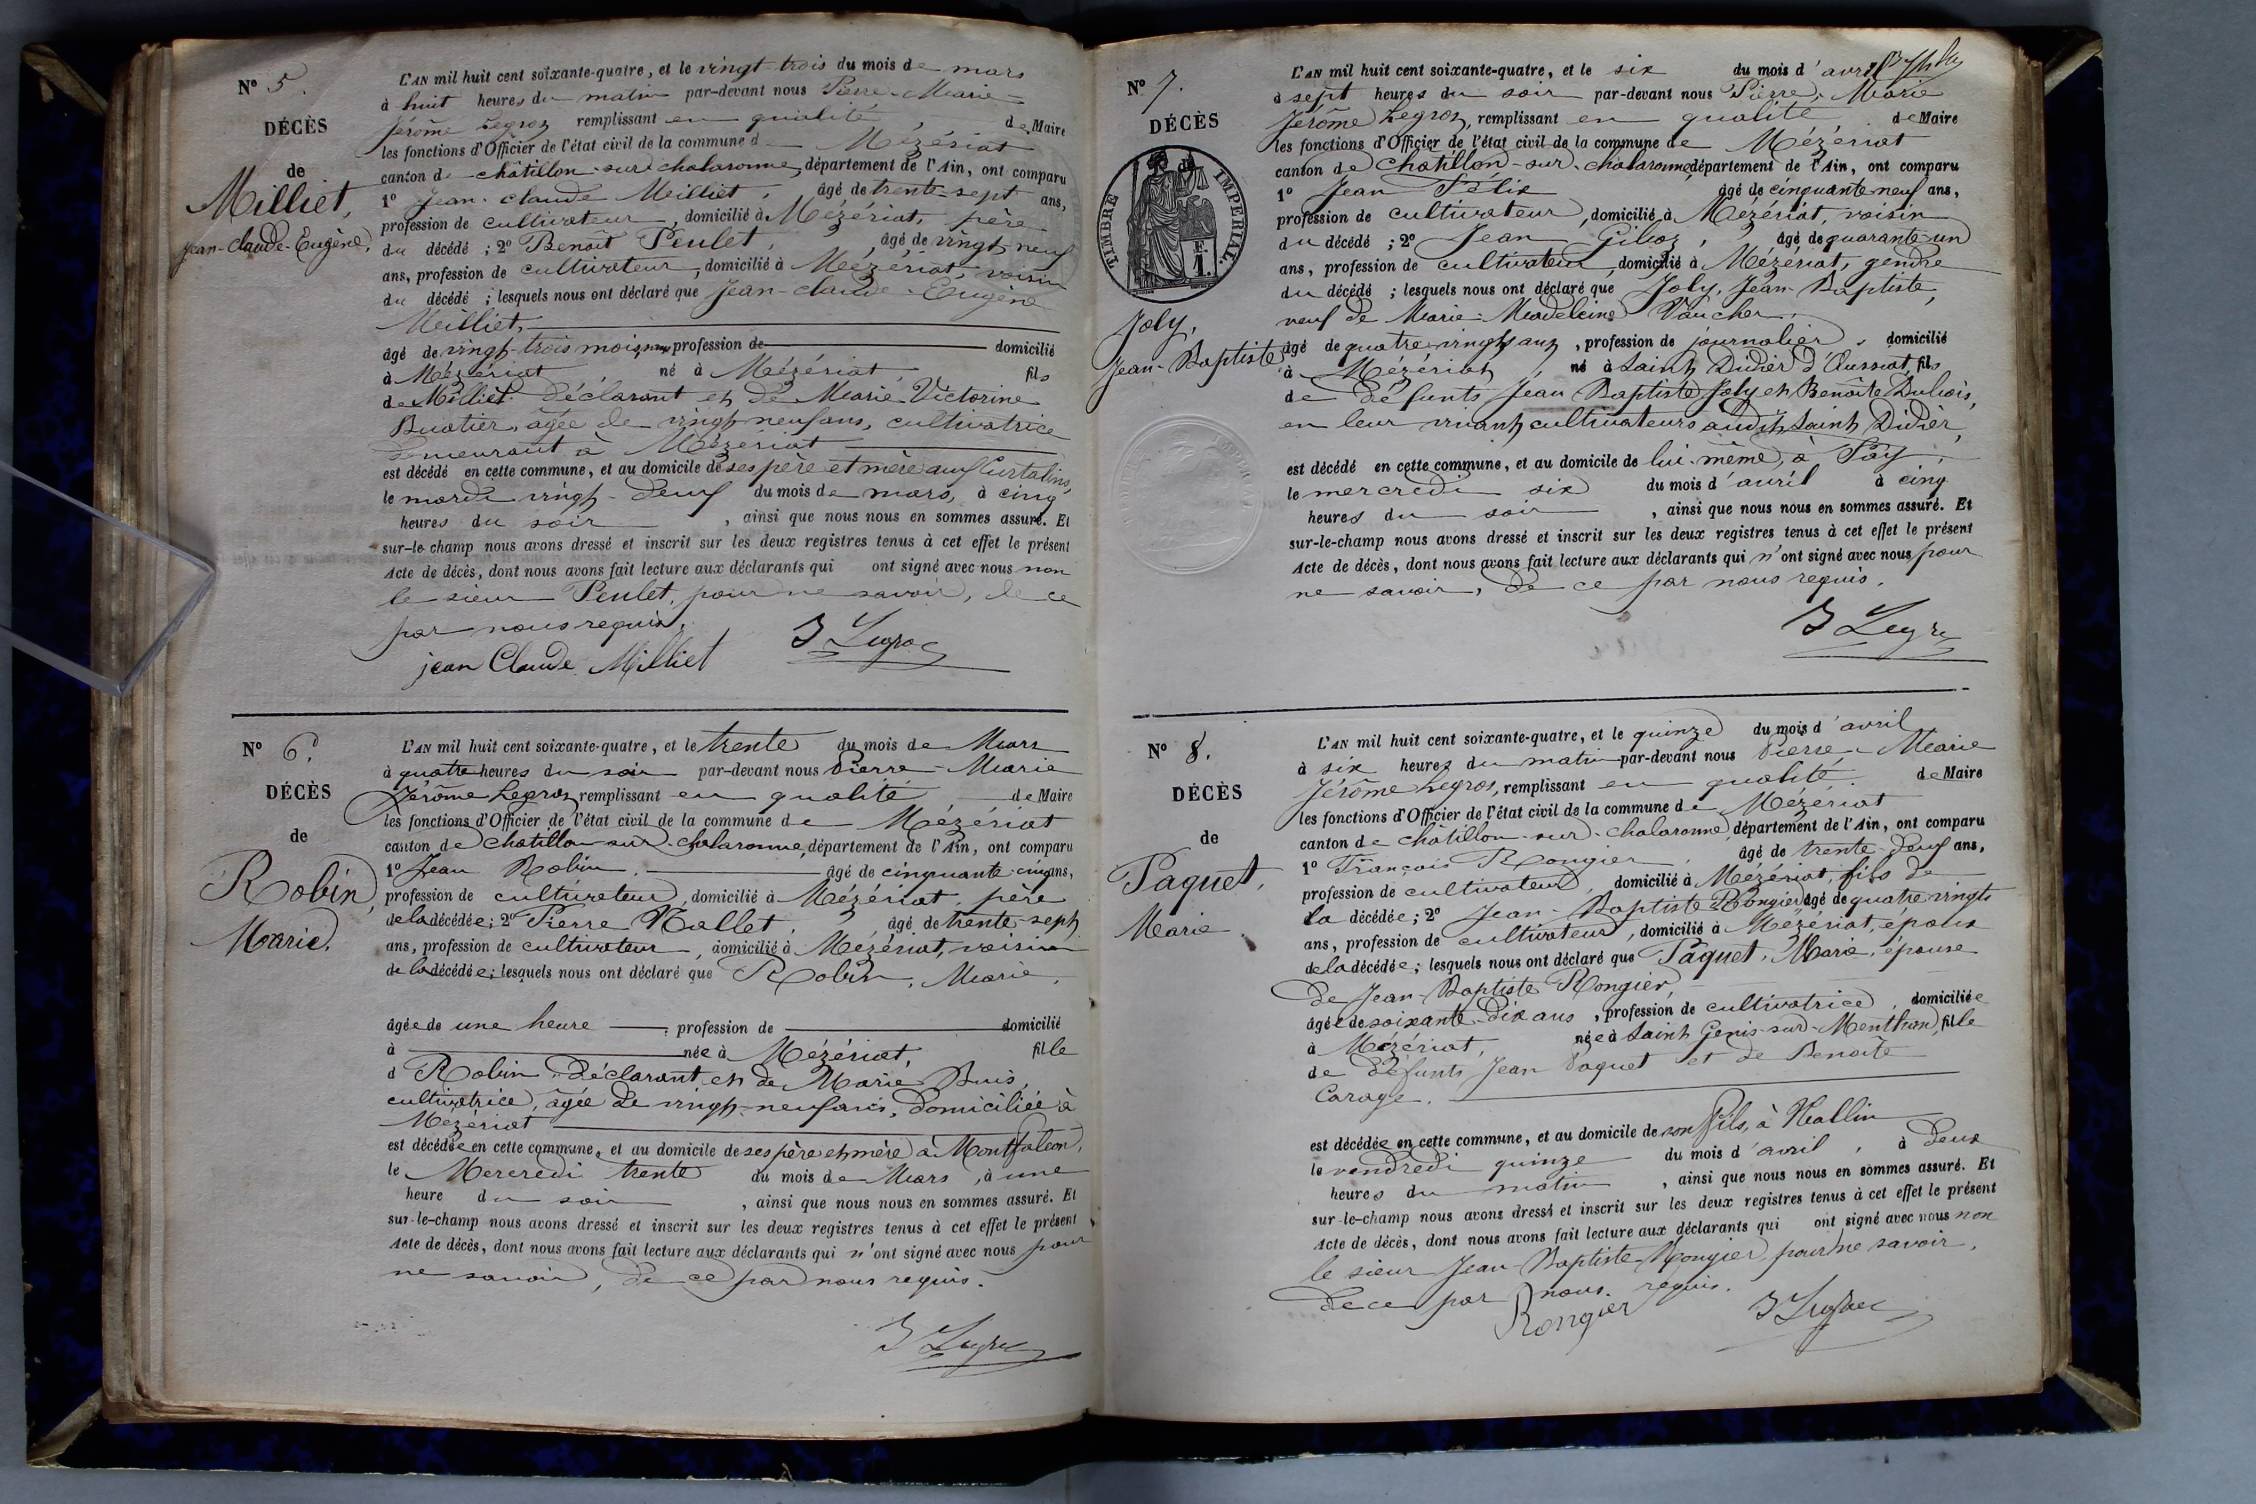 N° 5.
DÉCÈS
de
Milliet,
Jean-Claude-Eugène.
L'AN mil huit cent soixante-quatre, et le vingt-trois du mois de mars
à huit heures du matin par-devant nous Pierre-Marie-
Jérôme Legros remplissant en qualité, de Maire
les fonctions d'Officier de l'état civil de la commune de Mézériat
canton de châtillon-sur-chalaronne, département de l'Ain, ont comparu
1° Jean-claude Milliet, âgé de trente-sept ans,
profession de cultivateur, domicilié à Mézériat, père
du décédé ; 2° Benoît Peulet, âgé de vingt-neuf
ans, profession de cultivateur, domicilié à Mézériat, voisin
du décédé ; lesquels nous ont déclaré que Jean-claude-Eugène
Milliet,
âgé de vingt-trois mois, profession de domicilié
à Mézériat né à Mézériat, fils
de Milliet déclarant et de Marie-Victorine
Buatier, âgée de vingt-neuf ans, cultivatrice
demeurant à Mézériat
est décédé en cette commune, et au domicile de ses père et mère aux Curtalins,
le mardi vingt-deux du mois de mars, à cinq
heures du soir, ainsi que nous nous en sommes assuré. Et
sur-le-champ nous avons dressé et inscrit sur les deux registres tenus à cet effet le présent
Acte de décès, dont nous avons fait lecture aux déclarants qui ont signé avec nous non
le sieur Peulet, pour ne savoir, de ce
par nous requis.
jean Claude Milliet J Legros
N° 6.
DÉCÈS
de
Robin,
Marie.
L'AN mil huit cent soixante-quatre, et le trente du mois de Mars
à quatre heures du soir par-devant nous Pierre-Marie
Jérôme Legros remplissant en qualité, de Maire
les fonctions d'Officier de l'état civil de la commune de Mézériat
canton de chatillon-sur-chalaronne, département de l'Ain, ont comparu
1° Jean Robin, âgé de cinquante cinq ans,
profession de cultivateur, domicilié à Mézériat, père
de la décédée; 2° Pierre Nallet, âgé de trente-sept
ans, profession de cultivateur, domicilié à Mézériat, voisin
de la décédée; lesquels nous ont déclaré que Robin, Marie,
âgée de une heure, profession de domicilié
à née à Mézériat, fille
d Robin déclarant et de Marie Buis,
cultivatrice, âgée de vingt-neuf ans, domiciliée à
Mézériat
est décédée en cette commune, et au domicile de ses père et mère à Montfalcon,
le Mercredi trente du mois de Mars, à une
heure du soir, ainsi que nous nous en sommes assuré. Et
sur-le-champ nous avons dressé et inscrit sur les deux registres tenus à cet effet le présent
Acte de décès, dont nous avons fait lecture aux déclarants qui n'ont signé avec nous pour
ne savoir, de ce par nous requis.
J Legros
N° 7.
DÉCÈS
de
TIMBRE IMPERIAL.
E.
1.
Joly,
Jean-Baptiste
L'AN mil huit cent soixante-quatre, et le six du mois d'avril
à sept heures du soir par-devant nous Pierre-Marie
Jérôme Legros, remplissant en qualité de Maire
les fonctions d'Officier de l'état civil de la commune de Mézériat
canton de Chatillon-sur-chalaronne département de l'Ain, ont comparu
1° Jean Félix âgé de cinquante-neuf ans,
profession de cultivateur, domicilié à Mézériat, voisin
du décédé ; 2° Jean Giboz, âgé de quarante-un
ans, profession de cultivateur, domicilié à Mézériat, gendre
du décédé ; lesquels nous ont déclaré que Joly, Jean-Baptiste,
veuf de Marie-Madeleine Vaucher,
âgé de quatre-vingts ans, profession de journalier, domicilié
à Mézériat, né à Saint Didier d'Aussiat, fils
de défunts Jean Baptiste Joly et Benoîte Dubois,
en leur vivant cultivateurs audit Saint Didier,
est décédé en cette commune, et au domicile de lui-même, à Fay,
le mercredi six du mois d'avril à cinq
heures du soir, ainsi que nous nous en sommes assuré. Et
sur-le-champ nous avons dressé et inscrit sur les deux registres tenus à cet effet le présent
Acte de décès, dont nous avons fait lecture aux déclarants qui n'ont signé avec nous pour
ne savoir, de ce par nous requis.
J Legros
N° 8.
DÉCÈS
de
Paquet,
Marie
L'AN mil huit cent soixante-quatre, et le quinze du mois d'avril
à six heures du matin par-devant nous Pierre-Marie
Jérôme Legros, remplissant en qualité de Maire
les fonctions d'Officier de l'état civil de la commune de Mézériat
canton de châtillon-sur-chalaronne département de l'Ain, ont comparu
1° François Rongier, âgé de trente-deux ans,
profession de cultivateur, domicilié à Mézériat, fils de
la décédée; 2° Jean-Baptiste Rongier âgé de quatre vingts
ans, profession de cultivateur, domicilié à Mézériat, époux
de la décédée; lesquels nous ont déclaré que Paquet, Marie, épouse
de Jean-Baptiste Rongier,
âgée de soixante-dix ans, profession de cultivatrice, domiciliée
à Mézériat, née à Saint Genis-sur-Menthon, fille
de défunts Jean Paquet et de Benoîte
Carage.
est décédée en cette commune, et au domicile de son fils, à Nallin
le vendredi quinze du mois d'avril, à deux
heures du matin, ainsi que nous nous en sommes assuré. Et
sur-le-champ nous avons dressé et inscrit sur les deux registres tenus à cet effet le présent
Acte de décès, dont nous avons fait lecture aux déclarants qui ont signé avec nous non
le sieur Jean-Baptiste Rongier pour ne savoir,
de ce par nous requis.
Rongier J Legros